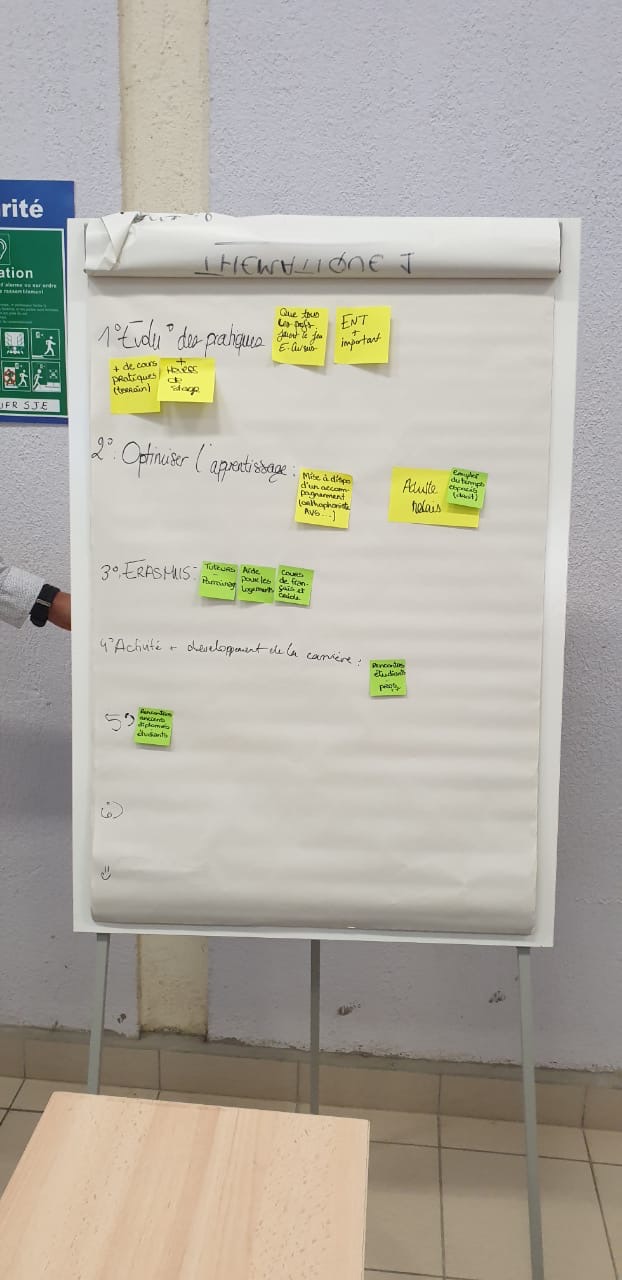 rité
ation
UFR SJE
THEMATIQUE 1
1° Évolu° des pratiques
Que tous
les profs
E-Cursus
ENT
+
important
+ de cours
pratiques
(terrain)
+
Heures
de
stage
2°. Optimiser l'apprentissage :
Mise à dispo
d'un accom-
pagnement
(orthophoniste
AVS...)
Adulte
Relais
Emplois
du temps
espacés
(droit)
3°. ERASMUS :
Tuteurs
-
Parrainage
Aide
pour les
logements
Cours
de fran-
çais et
4° Activité + développement de la carrière :
Rencontres
étudiants
-
profs
5°)
Rencontres
anciens
diplômés
étudiants